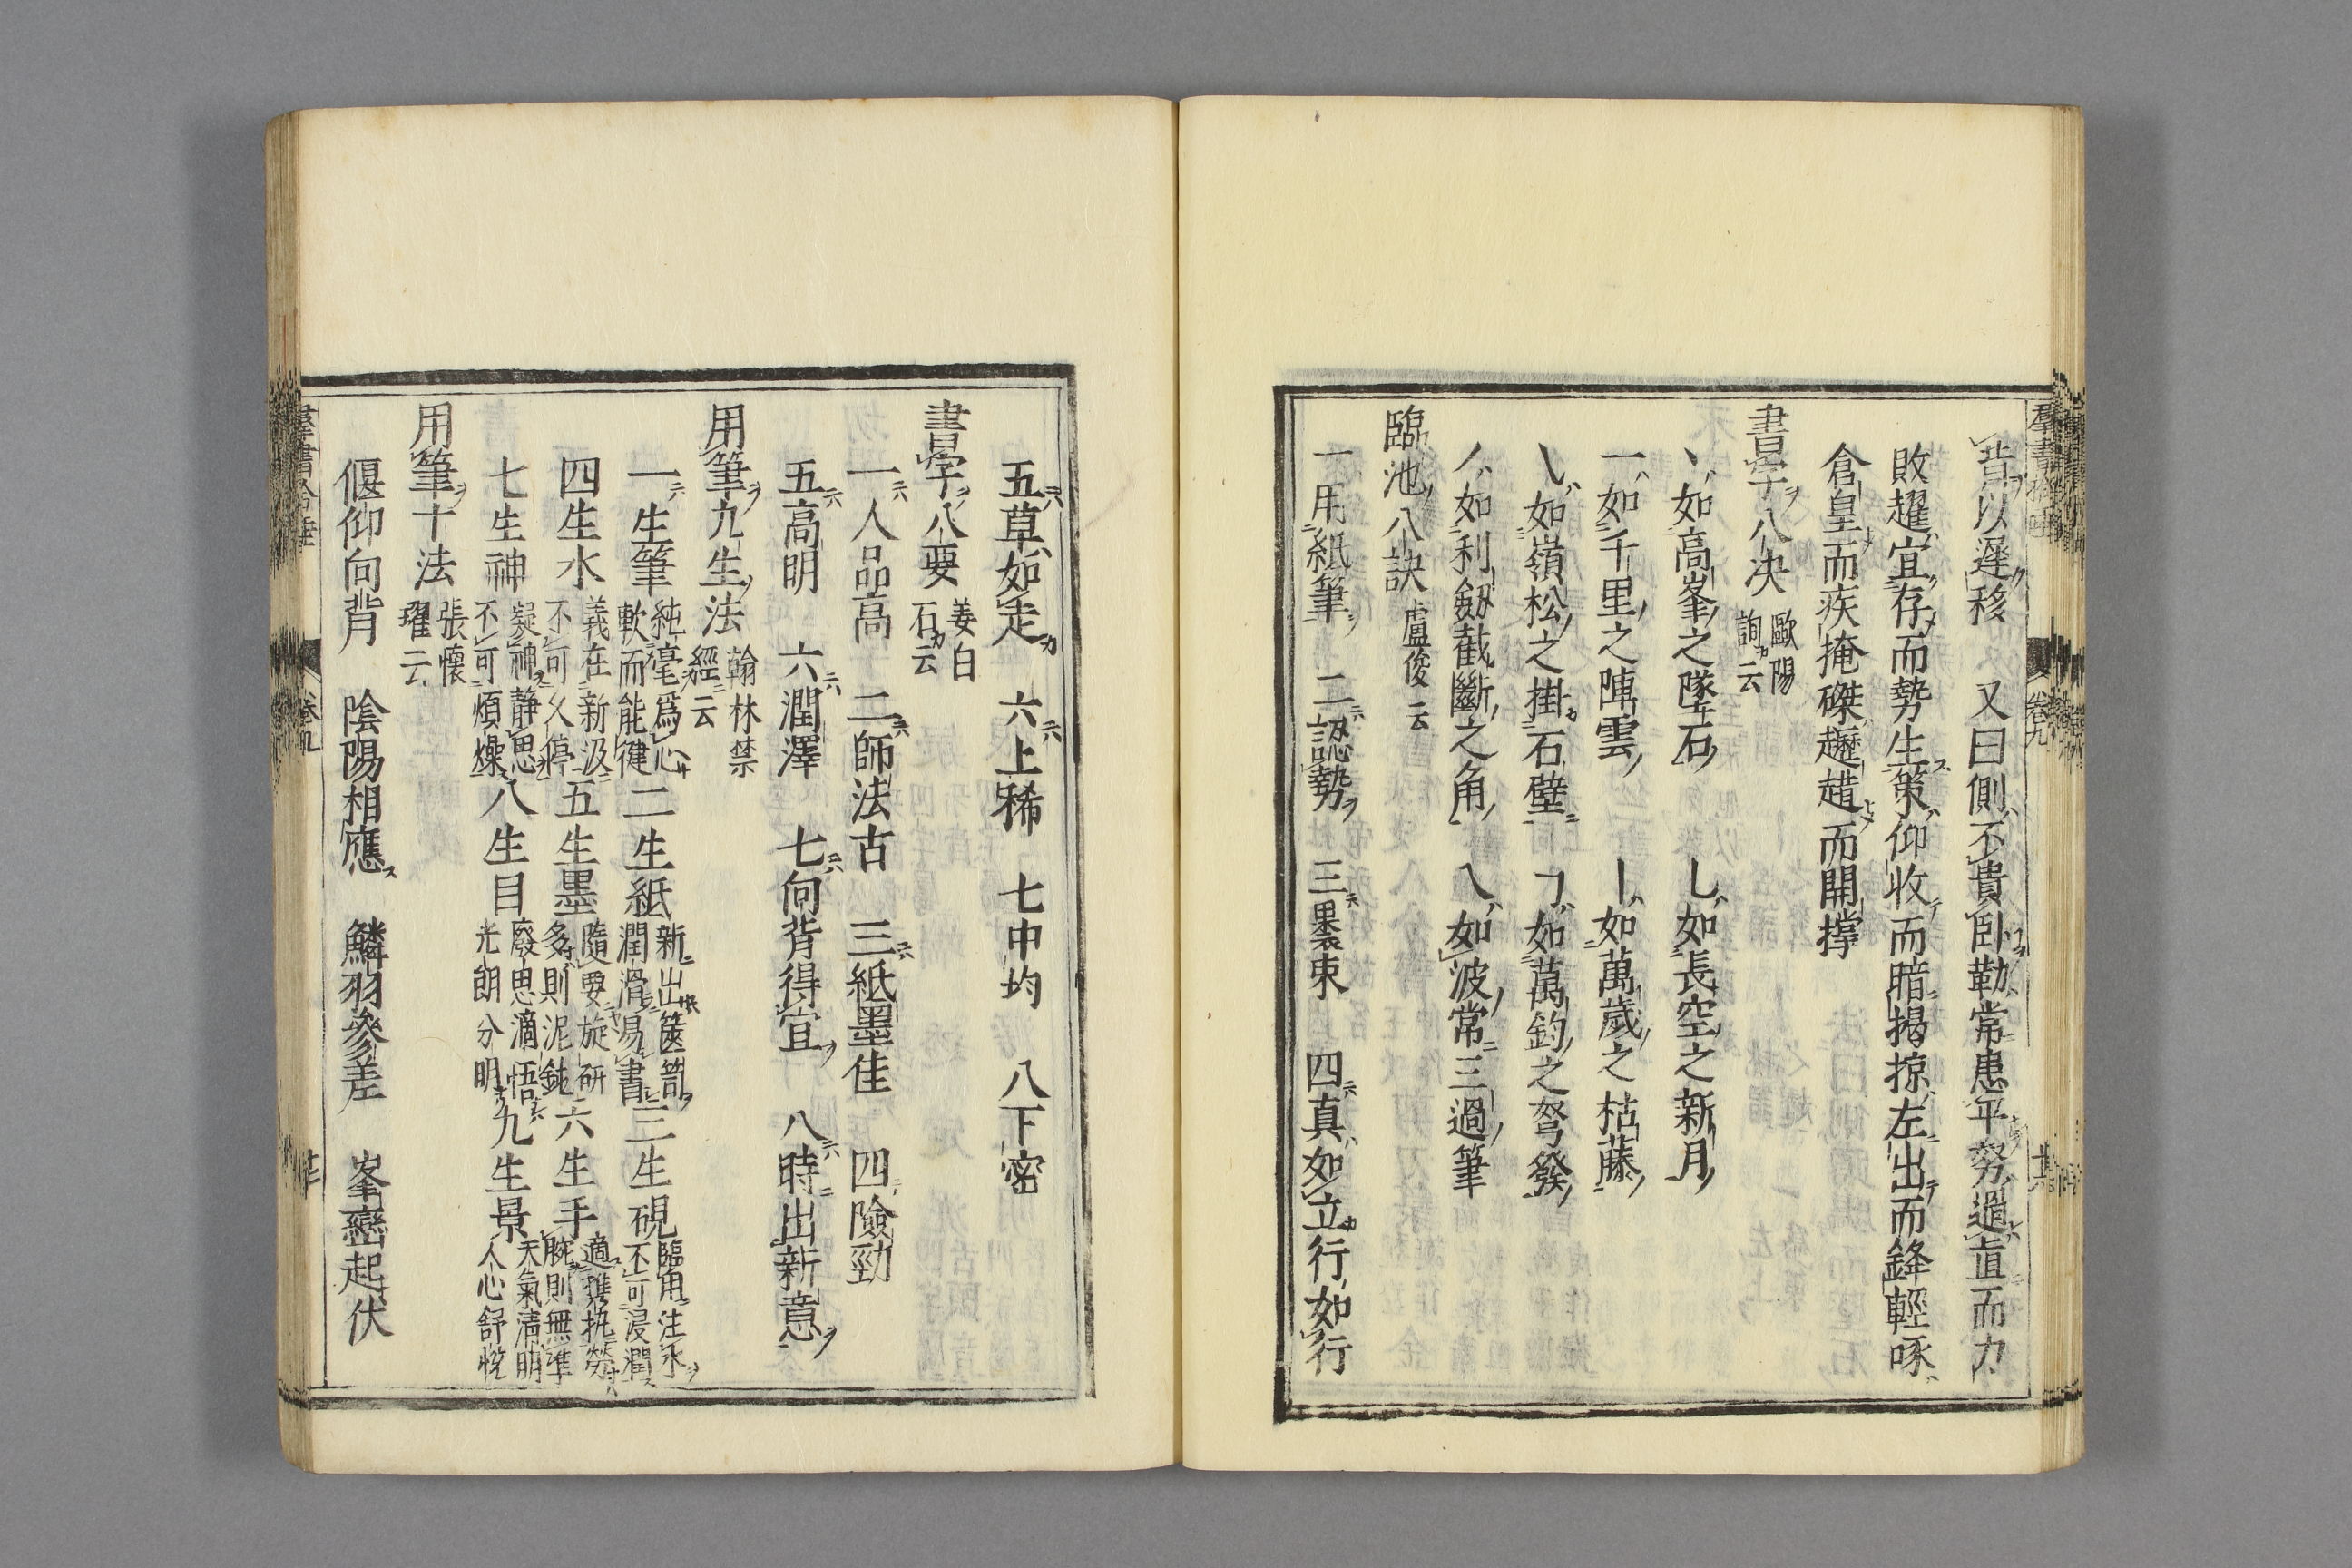 背以遲移　又曰側不貴臥勒常患平努過直而力
敗趯宜存而勢生策仰收而暗揭掠左出而鋒輕啄
倉皇而疾掩磔趯趞而開撑
書学八决 歐陽詢云
丶如高峯之墜石　乚如長空之新月
一如千里之陣雲　丨如萬歲之枯藤
㇂如嶺松之掛石壁　㇆如萬鈞之弩發
丿如利劔截斷之角　乀如波常三過筆
臨池八訣 盧俊云
一用紙筆　二認勢　三裹束　四真如立行如行
五草如走　六上稀　七中均　八下密
書學八要 姜白石云
一人品高　二師法古　三紙墨佳　四險勁
五高明　六潤澤　七向背得宜　八時出新意
用筆九生法 翰林禁經云
一生筆 純毫爲心軟而能健 二生紙 新出篋笥潤滑易書 三生硯 臨用注水不可浸潤
四生水 義在新汲不可久停 五生墨 隨要旋研多則泥鈍 六生手 適携执勞腕則無準
七生神 凝神静思不可煩燥 八生目 廢思滴悟光朗分明 九生景 天氣清明人心舒悅
用筆十法 張懷瓘云
偃仰向背　陰陽相應　鱗羽參差　峯巒起伏
卷九